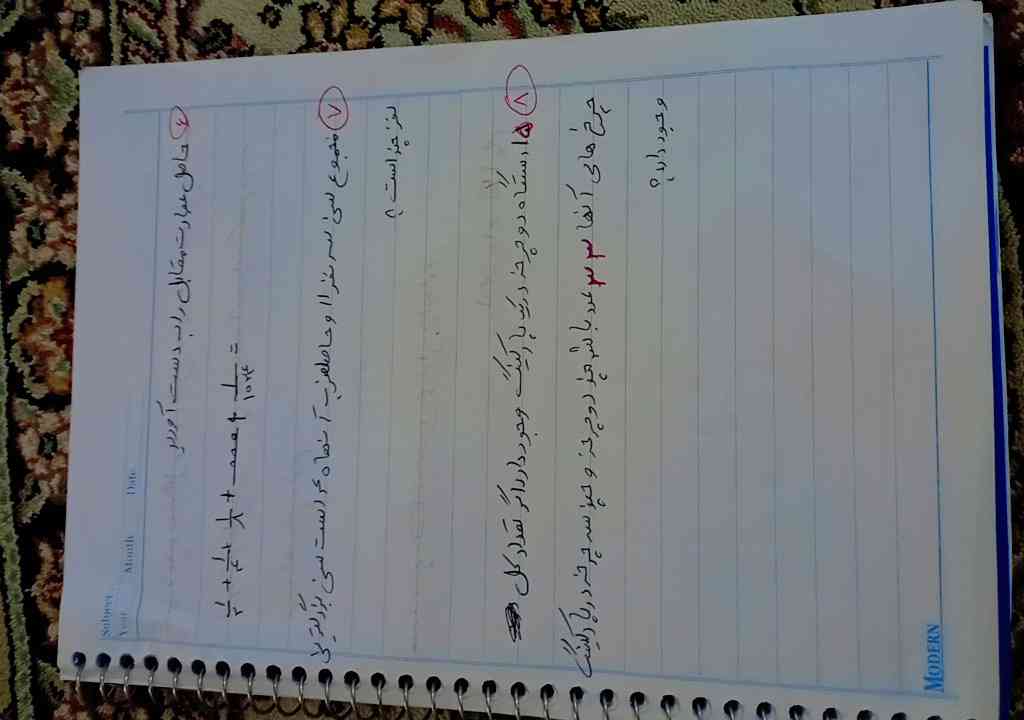 Subject
Year Month Date
۶ حاصل عبارت مقابل را به دست آورید
۱/۲ + ۱/۴ + ۱/۸ + ... + ۱/۱۰۲۴ =
۷ مجموع سنی سه نفر ۱۱ و حاصلضرب آنها ۶ است سنی بزرگترین
نفر چیز است؟
۸ ۱۵ دستگاه دو چرخه در یک پارکینگ وجود دارد اگر تعداد کل
چرخ هایی آنها ۳۳ عدد باشد چند دوچرخه و چند سه چرخه در پارکینگ
وجود دارد؟
MODERN